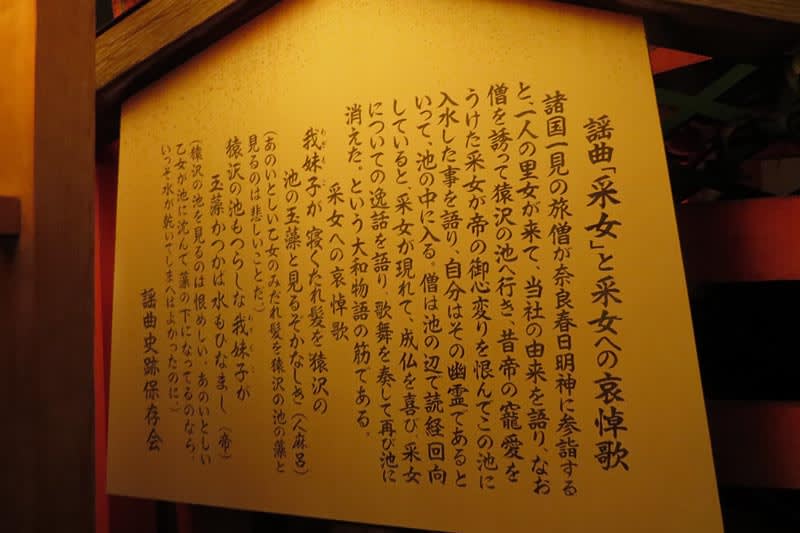 謡曲「采女」と采女への哀悼歌
諸国一見の旅僧が奈良春日明神に参詣する
と、一人の里女が来て、当社の由来を語り、なお
僧を誘って猿沢の池へ行き、昔帝の寵愛を
うけた采女が帝の御心変りを恨んでこの池に
入水した事を語り、自分はその幽霊であると
いって、池の中に入る。僧は池の辺で読経回向
していると、采女が現れて、成仏を喜び、采女
についての逸話を語り、歌舞を奏して再び池に
消えた。という大和物語の筋である。
采女への哀悼歌
我妹子が 寝くたれ髪を猿沢の
池の玉藻と見るぞかなしき (人麻呂)
(あのいとしい乙女のみだれ髪を猿沢の池の藻と
見るのは悲しいことだ。)
猿沢の池もつらしな我妹子が
玉藻かつかば水もひなまし (帝)
(猿沢の池を見るのは恨めしい。あのいとしい
乙女が池に沈んで、藻の下になってるのなら、
いっそ水が乾いてしまへばよかったのに。)
謡曲史跡保存会